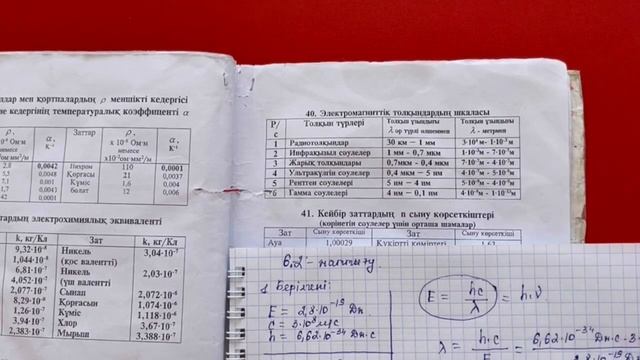 лдар мен қортпалардың ρ меншікті кедергісі
не кедергінің температуралық коэффиценті α
ρ, α, Заттар ρ, α,
Ом·м К⁻¹ х 10⁻⁸ Ом·м К⁻¹
немесе немесе
2,8 0,0042 Нихром 110 0,0001
5,5 0,0048 Қорғасы 21 0,0037
7,1 0,001 Күміс 1,6 0,004
1,7 0,0043 болат 12 0,006
0,0041
ттардың электрохимиялық эквиваленті
k, кг/Кл Зат k, кг/Кл
9,32·10⁻⁸ Никель 3,04·10⁻⁷
1,044·10⁻⁸ (қос валентті)
6,81·10⁻⁷ Никель 2,03·10⁻⁷
4,052·10⁻⁷ (үш валентті
2,077·10⁻⁷ Сынап 2,072·10⁻⁶
8,29·10⁻⁸ Қорғасын 1,074·10⁻⁶
1,26·10⁻⁷ Күміс 1,118·10⁻⁶
3,94·10⁻⁷ Хлор 3,67·10⁻⁷
2,383·10⁻⁷ Мырыш 3,388·10⁻⁷
40. Электромагниттік толқындардың шкаласы
Р/с Толқын түрлері Толқын ұзындығы λ әр түрлі өлшеммен Толқын ұзындығы λ - метрмен
1 Радиотолқындар 30 км – 1 мм 3·10⁴м- 1·10⁻³м
2 Инфрақызыл сәулелер 1 мм - 0,7 мкм 1·10⁻³м - 7·10⁻⁷м
3 Жарық толқындары 0,7мкм - 0,4 мкм 7·10⁻⁷м - 4·10⁻⁷м
4 Ультракүлгін сәулелер 0,4 мкм – 5 нм 4·10⁻⁷м - 5·10⁻⁹м
5 Рентген сәулелері 5 нм – 4 пм 5·10⁻⁹м - 4·10⁻¹²м
6 Гамма сәулелері 4 пм – 0,1 пм 4·10⁻¹²м - 1·10⁻¹³м
41. Кейбір заттардың n сыну көрсеткіштері
(көрінетін сәулелер үшін орташа шамалар)
Зат Сыну көрсеткіші Зат Сыну көрсеткіші
Ауа 1,00029 Күкіртті көміртегі 1,62
6.2 - жаттығу.
Берілгені:
E = 2,8·10⁻¹⁹ Дж
c = 3·10⁸ м/с
h = 6,62·10⁻³⁴ Дж·с
E = hc/λ = h·ν
λ = h·c/E = 6,62·10⁻³⁴ Дж·с·3